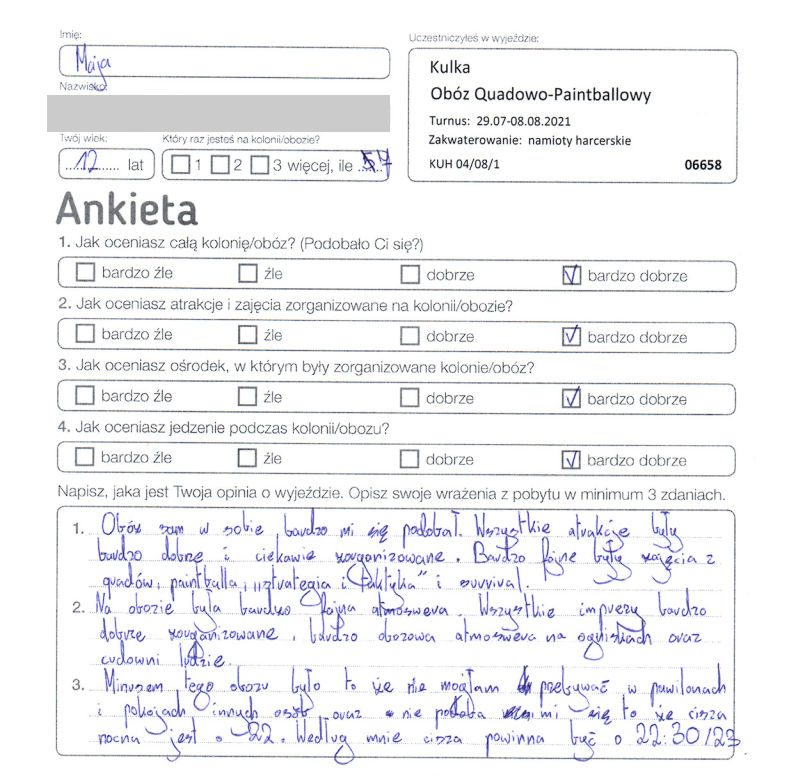 Imię:
Maja
Nazwisko:
Uczestniczyłeś w wyjeździe:
Kulka
Obóz Quadowo-Paintballowy
Turnus: 29.07-08.08.2021
Zakwaterowanie: namioty harcerskie
KUH 04/08/1 06658
Twój wiek:
12 lat
Który raz jesteś na kolonii/obozie?
1 2 3 więcej, ile 7
Ankieta
1. Jak oceniasz całą kolonię/obóz? (Podobało Ci się?)
bardzo źle źle dobrze bardzo dobrze
2. Jak oceniasz atrakcje i zajęcia zorganizowane na kolonii/obozie?
bardzo źle źle dobrze bardzo dobrze
3. Jak oceniasz ośrodek, w którym były zorganizowane kolonie/obóz?
bardzo źle źle dobrze bardzo dobrze
4. Jak oceniasz jedzenie podczas kolonii/obozu?
bardzo źle źle dobrze bardzo dobrze
Napisz, jaka jest Twoja opinia o wyjeździe. Opisz swoje wrażenia z pobytu w minimum 3 zdaniach.
1. Obóz sam w sobie bardzo mi się podobał. Wszystkie atrakcje były
bardzo dobrze i ciekawie zorganizowane. Bardzo fajne były zajęcia z
quadów, paintballa, „strategia i taktyka" i survival.
2. Na obozie była bardzo fajna atmoswera. Wszystkie imprezy bardzo
dobrze zorganizowane, bardzo obozowa atmoswera na ogniskach oraz
cudowni ludzie.
3. Minusem tego obozu było to że nie mogłam przebywać w pawilonach
i pokojach innych osób oraz nie podoba mi się to że cisza
nocna jest o 22. Według mnie cisza powinna być o 22:30/23